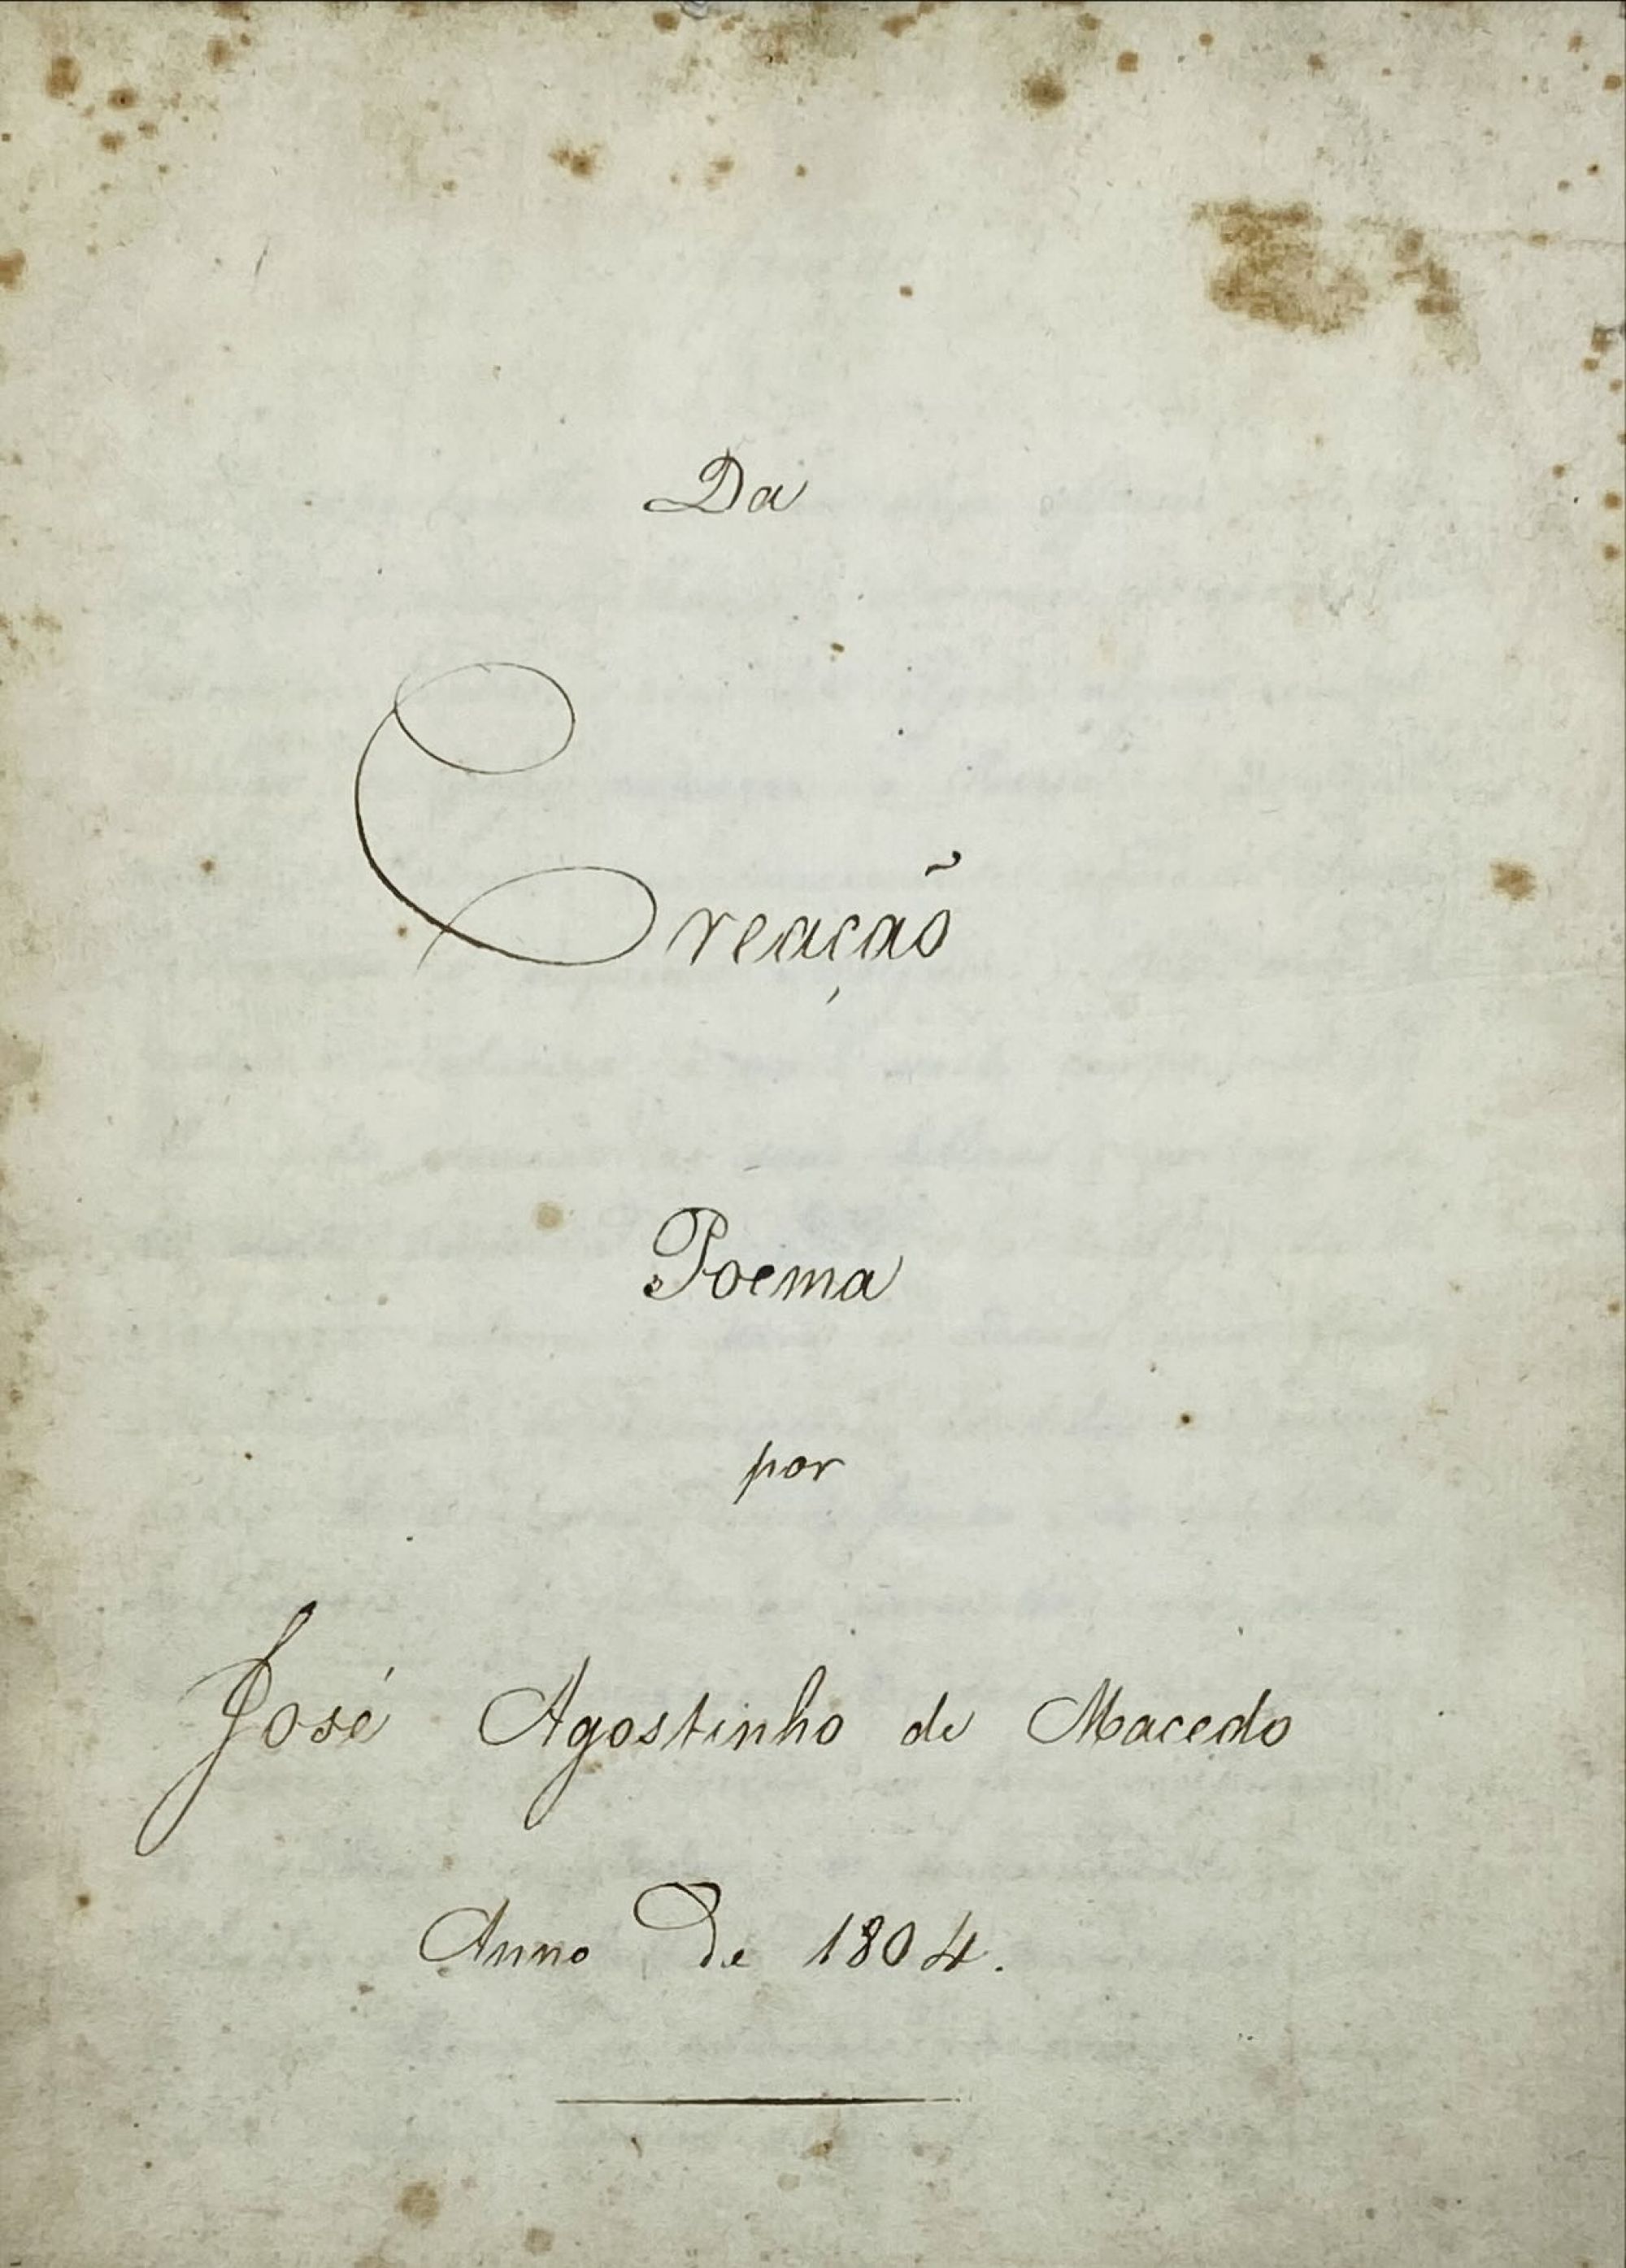 Da
Creação
Poema
por
José Agostinho de Macedo
Anno De 1804.